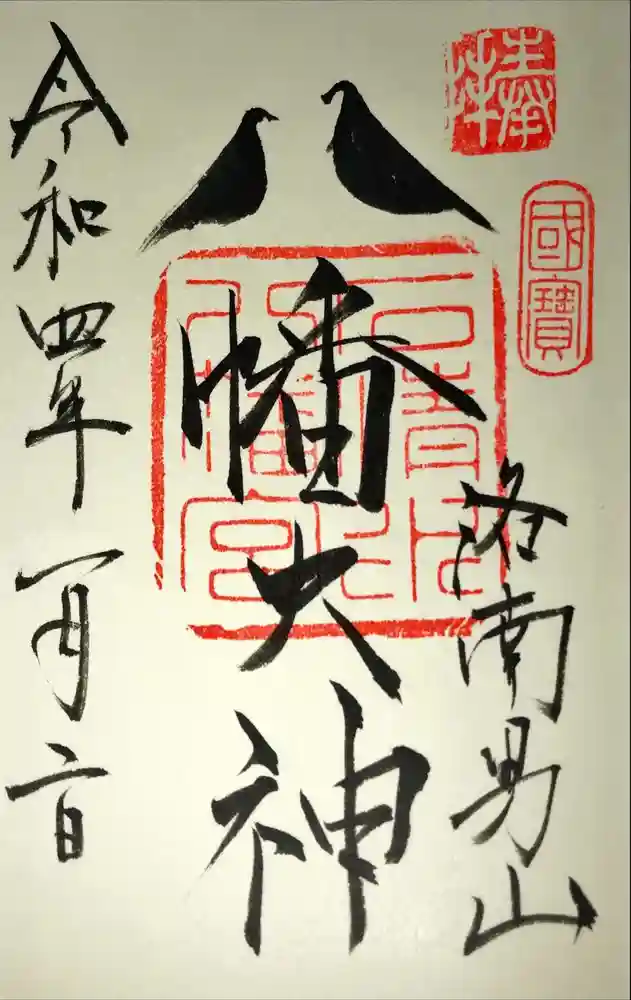 奉拝
國寶
洛南男山
八幡大神
石清水
八幡宮
令和四年一月二日